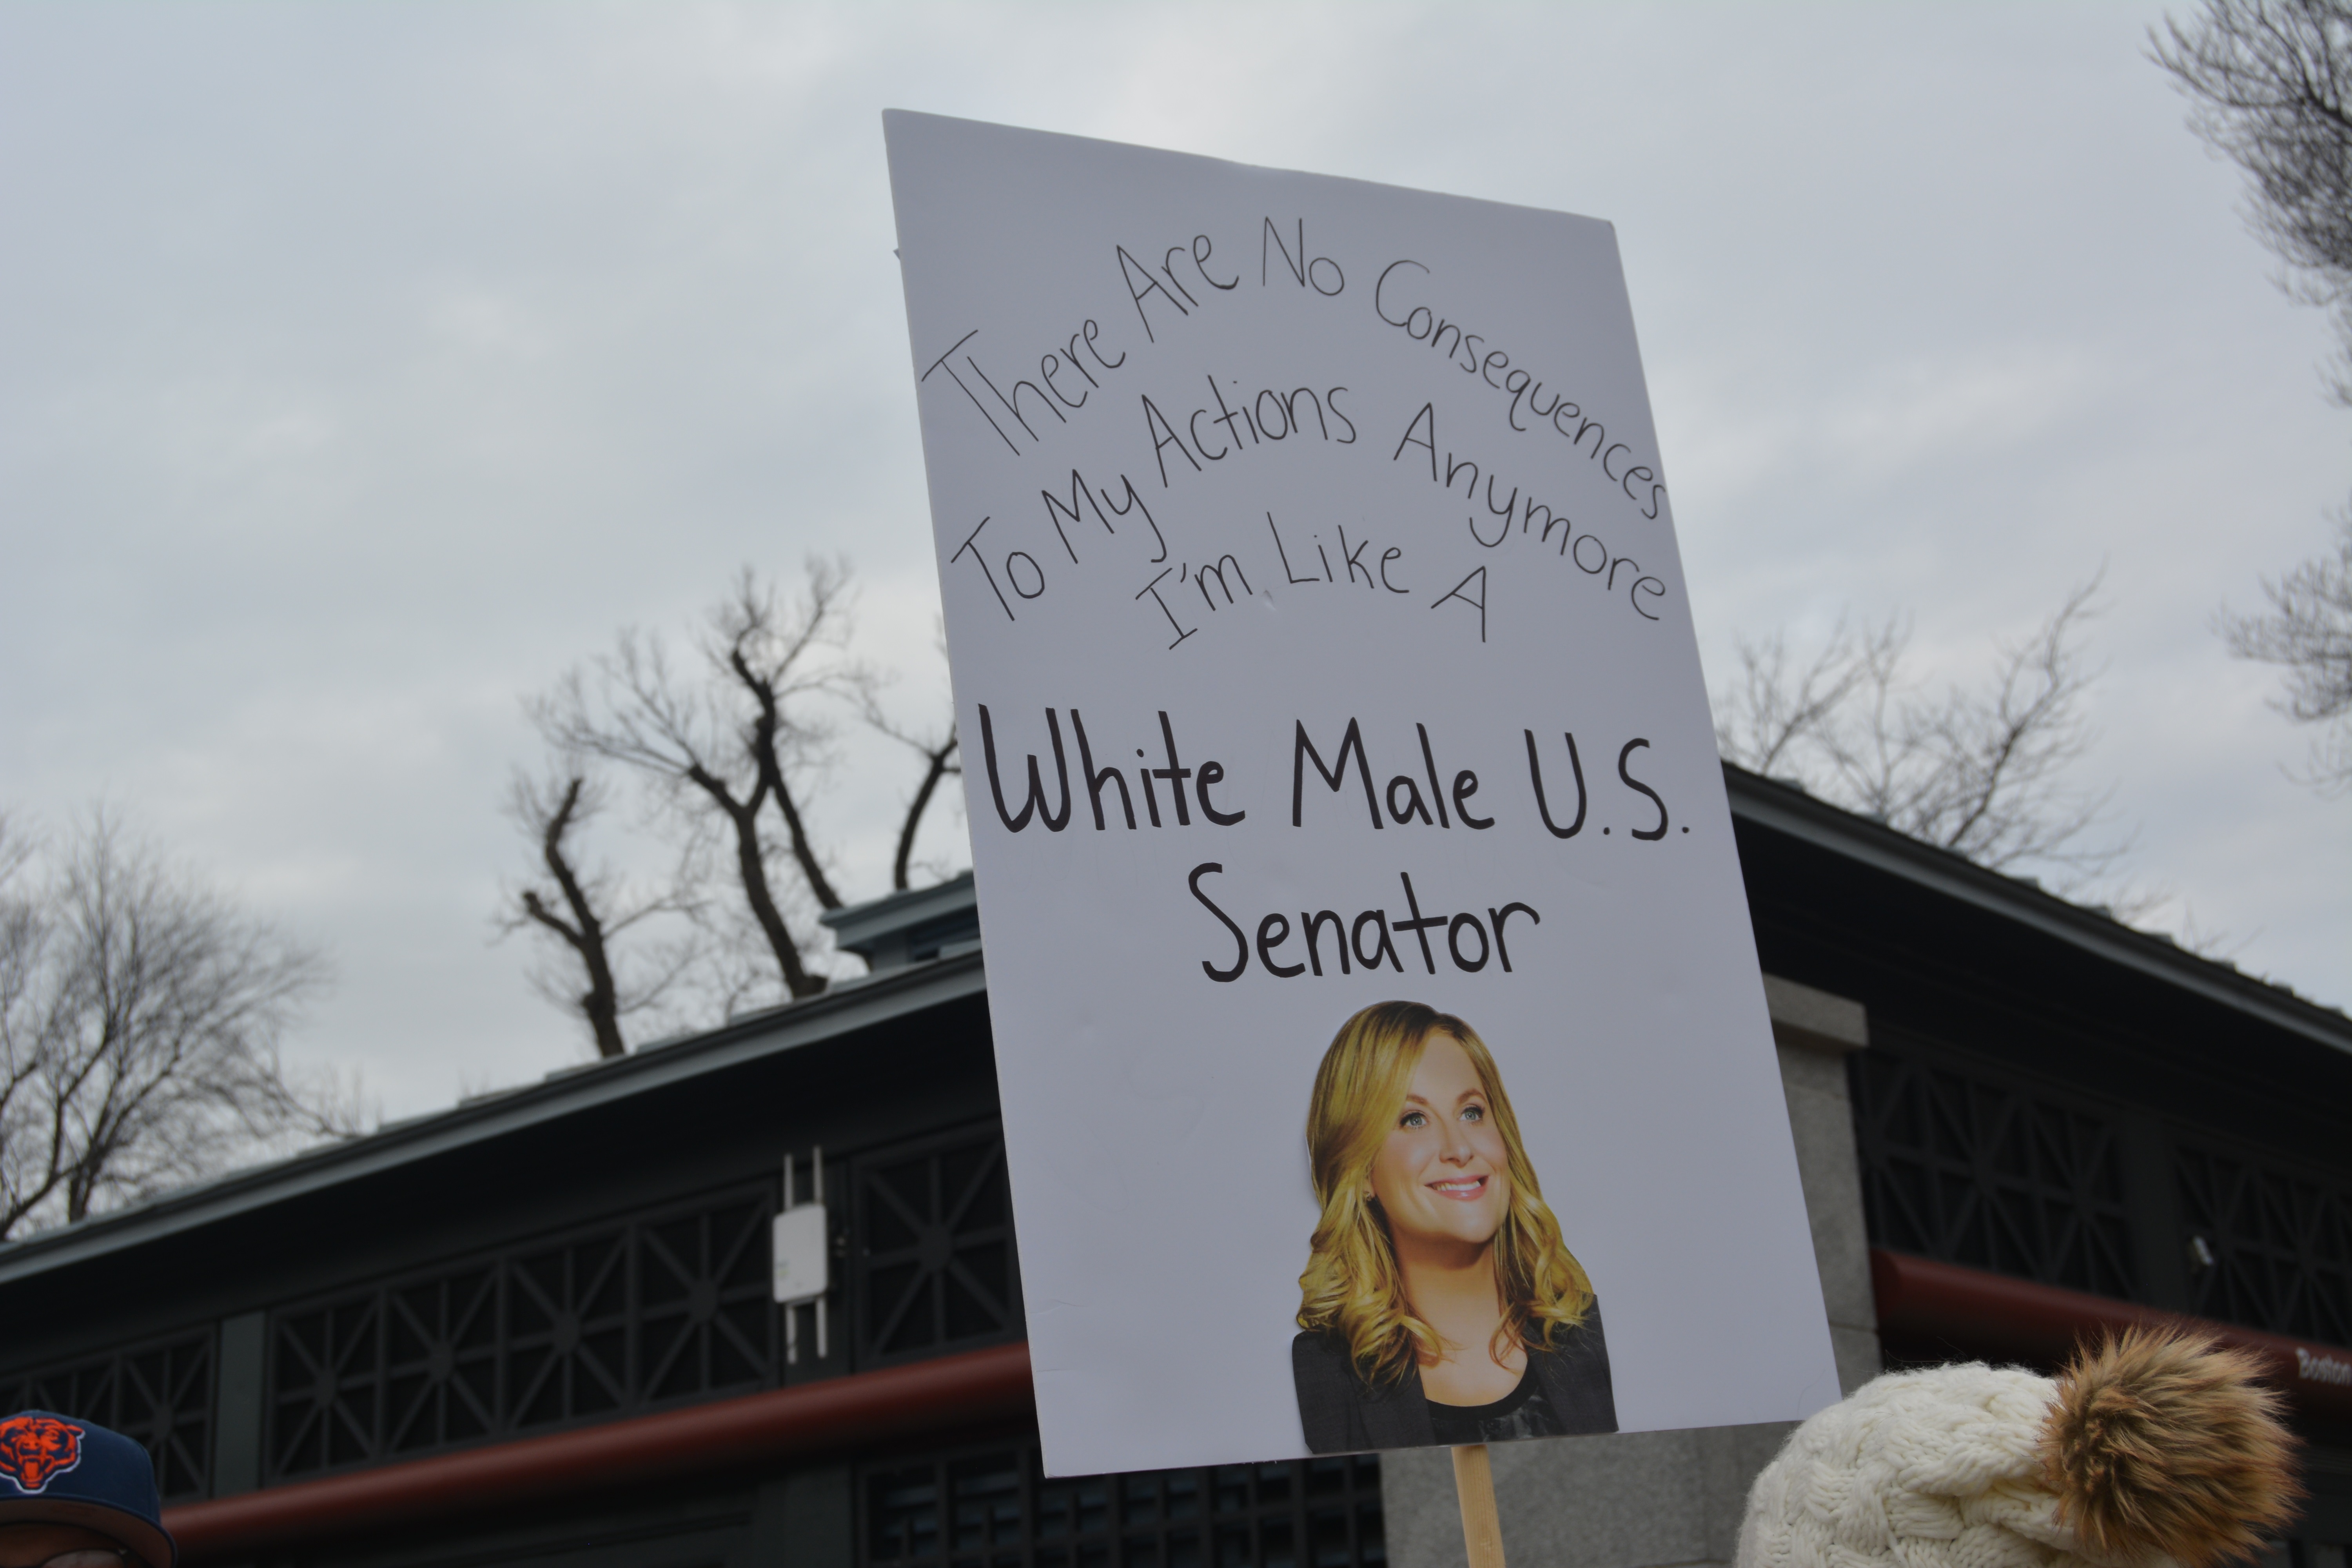 There Are No Consequences
To My Actions Anymore
I'm Like A
White Male U.S.
Senator
Boston